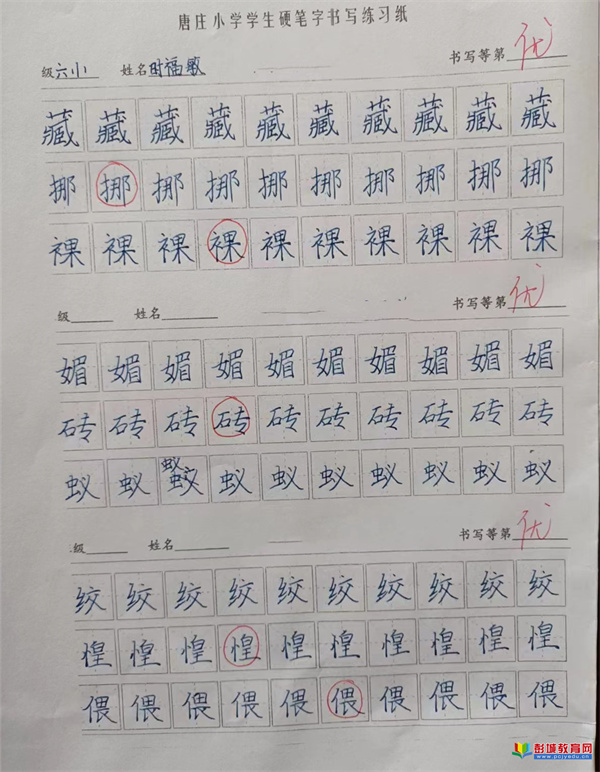 唐庄小学学生硬笔字书写练习纸
级六小 姓名时福敏 书写等第优
藏藏藏藏藏藏藏藏藏藏
挪挪挪挪挪挪挪挪挪挪
裸裸裸裸裸裸裸裸裸裸
级 姓名 书写等第优
媚媚媚媚媚媚媚媚媚媚
砖砖砖砖砖砖砖砖砖砖
蚁
蚁蚁蚊蚁蚁蚁蚁蚁蚁蚁
级 姓名 书写等第优
绞绞绞绞绞绞绞绞绞绞
惶惶惶惶惶惶惶惶惶惶
偎偎偎偎偎偎偎偎偎偎
彭城教育网
www.pcjyedu.cn